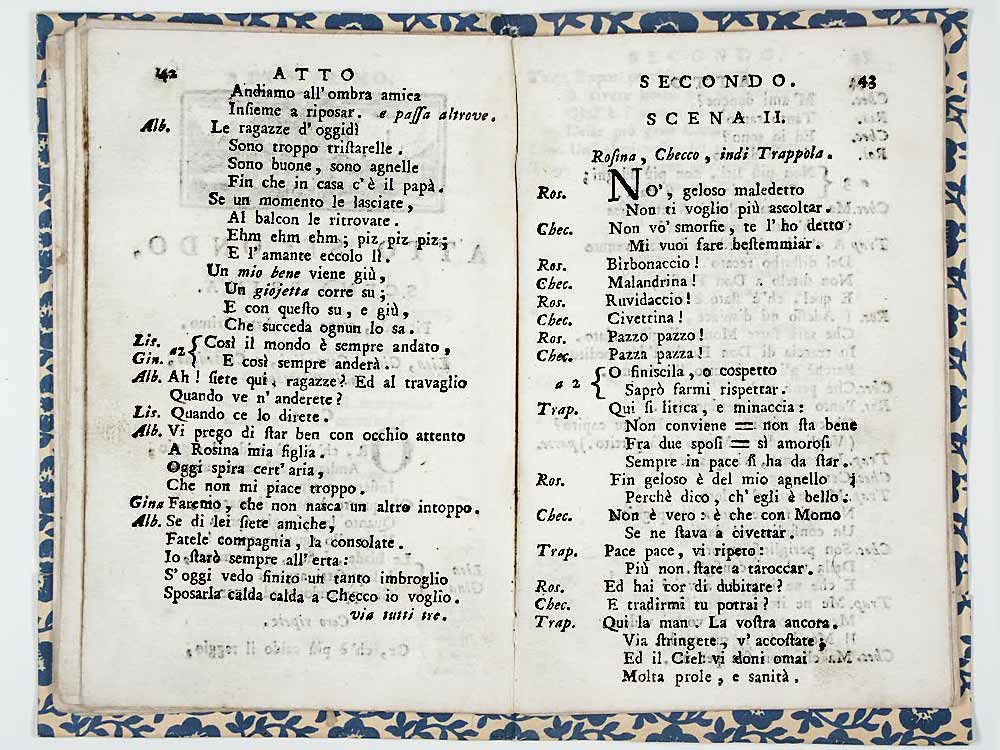 142 ATTO
Andiamo all' ombra amica
Insieme a riposar. e passa altrove.
Alb. Le ragazze d' oggidì
Sono troppo tristarelle.
Sono buone, sono agnelle
Fin che in casa c'è il papà.
Se un momento le lasciate,
Al balcon le ritrovate.
Ehm ehm ehm; piz piz piz;
E l'amante eccolo lì.
Un mio bene viene giù,
Un giojetta corre su;
E con questo su, e giù,
Che succeda ognun lo sa.
Lis. Gin. a2 { Così il mondo è sempre andato,
E così sempre anderà.
Alb. Ah! siete qui, ragazze? Ed al travaglio
Quando ve n' anderete?
Lis. Quando ce lo direte.
Alb. Vi prego di star ben con occhio attento
A Rosina mia figlia.
Oggi spira cert' aria,
Che non mi piace troppo.
Gina Faremo, che non nasca un altro intoppo.
Alb. Se di lei siete amiche,
Fatele compagnia, la consolate.
Io starò sempre all' erta:
S' oggi vedo finito un tanto imbroglio
Sposarla calda calda a Checco io voglio.
via tutti tre.
SECONDO. 143
SCENA II.
Rosina, Checco, indi Trappola.
Ros. NO', geloso maledetto
Non ti voglio più ascoltar.
Chec. Non vo' smorfie, te l' ho detto
Mi vuoi fare bestemmiar.
Ros. Birbonaccio!
Chec. Malandrina!
Ros. Ruvidaccio!
Chec. Civettina!
Ros. Pazzo pazzo!
Chec. Pazza pazza!
a 2 { O finiscila, o cospetto
Saprò farmi rispettar.
Trap. Qui si litica, e minaccia:
Non conviene = non sta bene
Fra due sposi = sì amorosi
Sempre in pace si ha da star.
Ros. Fin geloso è del mio agnello
Perchè dico, ch' egli è bello.
Chec. Non è vero: è che con Momo
Se ne stava a civettar.
Trap. Pace pace, vi ripeto:
Più non state a taroccar.
Ros. Ed hai cor di dubitare?
Chec. E tradirmi tu potrai?
Trap. Qui la man: La vostra ancora.
Via stringete, v' accostate;
Ed il Ciel vi doni omai
Molta prole, e sanità.